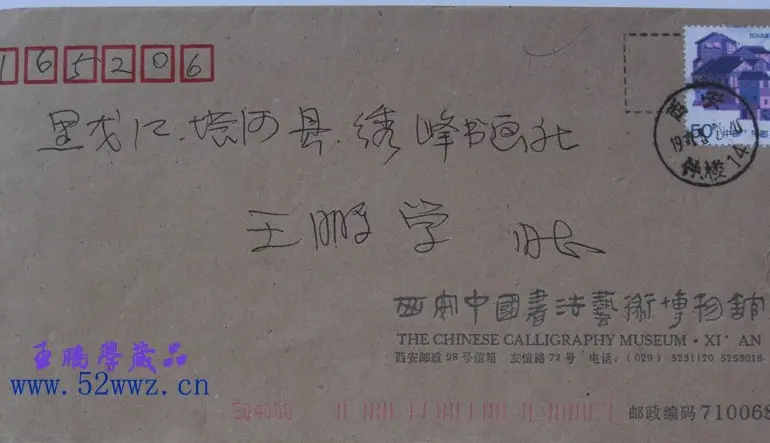 165206
黑龙江.塔河县.绣峰书画社
王鹏学 收
西安
50
14
西安中國書法藝術博物館
THE CHINESE CALLIGRAPHY MUSEUM · XI' AN
西安邮政 98 号信箱 友谊路 72 号 电话:(029) 5231120 5253016
邮政编码 710068
王鵬學藏品
www.52wwz.cn